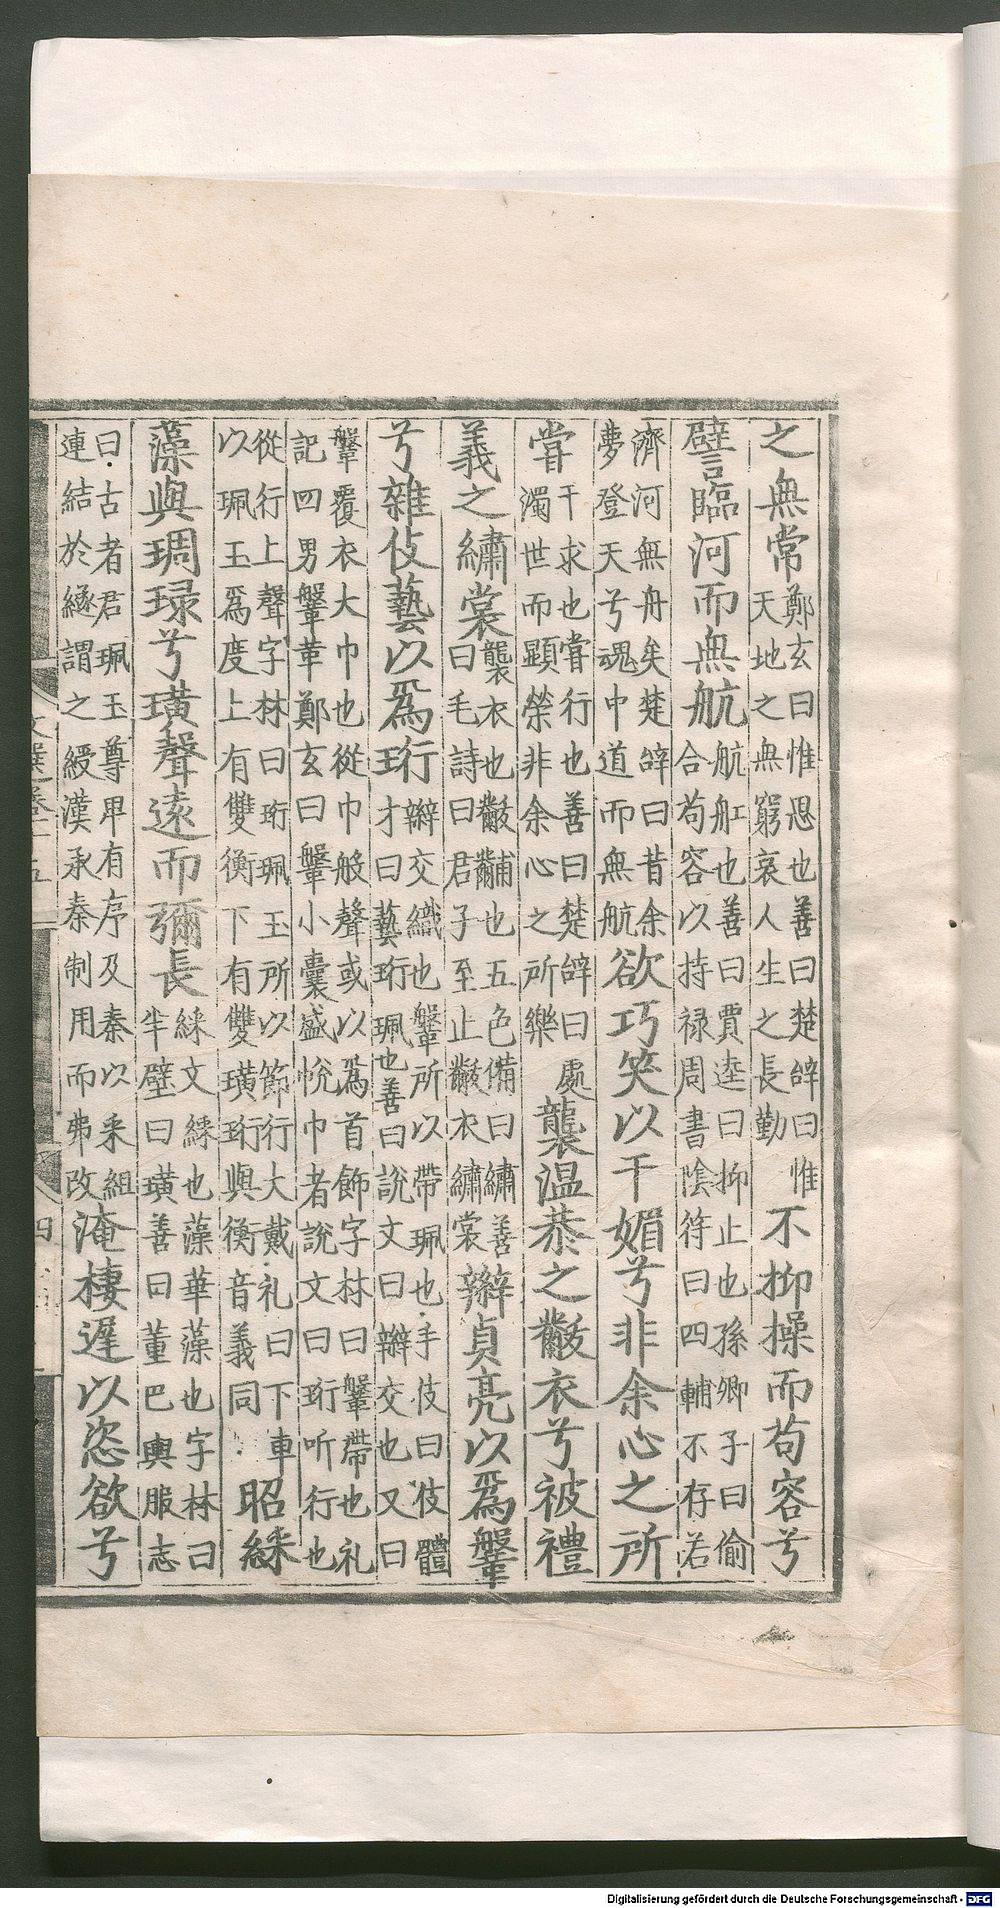 之無常鄭玄曰惟思也善曰楚辞曰惟天地之無窮哀人生之長勤不抑操而苟容兮
譬臨河而無航航舡也善曰賈逵曰抑止也孫卿子曰偷合苟容以持禄周書陰符曰四輔不存若
濟河無舟矣楚辞曰昔余夢登天兮魂中道而無航欲巧笑以干媚兮非余心之所
嘗干求也嘗行也善曰楚辞曰處濁世而顯榮非余心之所樂襲温恭之黻衣兮被禮
義之繡裳襲衣也黻黼也五色備曰繡善曰毛詩曰君子至止黻衣繡裳辮貞亮以爲鞶
兮雜伎藝以爲珩辮交織也鞶所以帶珮也手伎曰伎體才曰藝珩珮也善曰說文曰辮交也又曰
鞶覆衣大巾也從巾般聲或以爲首飾字林曰鞶帶也礼記四男鞶革鄭玄曰鞶小囊盛帨巾者説文曰珩所行也
從行上聲字林曰珩珮玉所以節行大戴礼曰下車以珮玉爲度上有雙衡下有雙璜珩與衡音義同昭綵
藻與琱琭兮璜聲遠而彌長綵文綵也藻華藻也字林曰半璧曰璜善曰董巴輿服志
曰古者君珮玉尊卑有序及秦以采組連結於繸謂之綬漢承秦制用而弗改淹棲遲以恣欲兮
文選卷十五
四
Digitalisierung gefördert durch die Deutsche Forschungsgemeinschaft - DFG